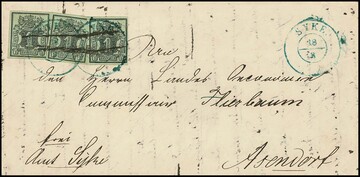 SYKE
18
An
den Herrn Landes Oeconomie
Commissair Flierbaum
frei
Amt Syke
Asendorf